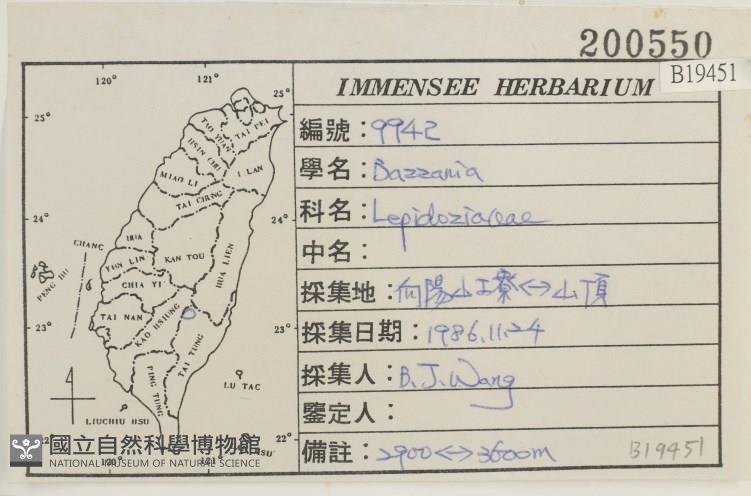 200550
B19451
IMMENSEE HERBARIUM
編號：9942
學名：Bazzania
科名：Lepidoziaceae
中名：
採集地：向陽山工寮<->山頂
採集日期：1986.11.24
採集人：B.J.Wang
鑒定人：
備註：2900<->3600m
B19451
120°
121°
25°
25°
TAO YUAN
TAI PEI
HSIN CHU
MIAO LI
I LAN
TAI CHUNG
24°
24°
CHANG
HUA
KAN TOU
HUA LIEN
YUN LIN
PENG HU
CHIA YI
TAI NAN
KAO HSIUNG
23°
23°
TAI TUNG
PING TUNG
LU TAO
LIUCHIU HSU
22°
120°
121°
國立自然科學博物館
NATIONAL MUSEUM OF NATURAL SCIENCE